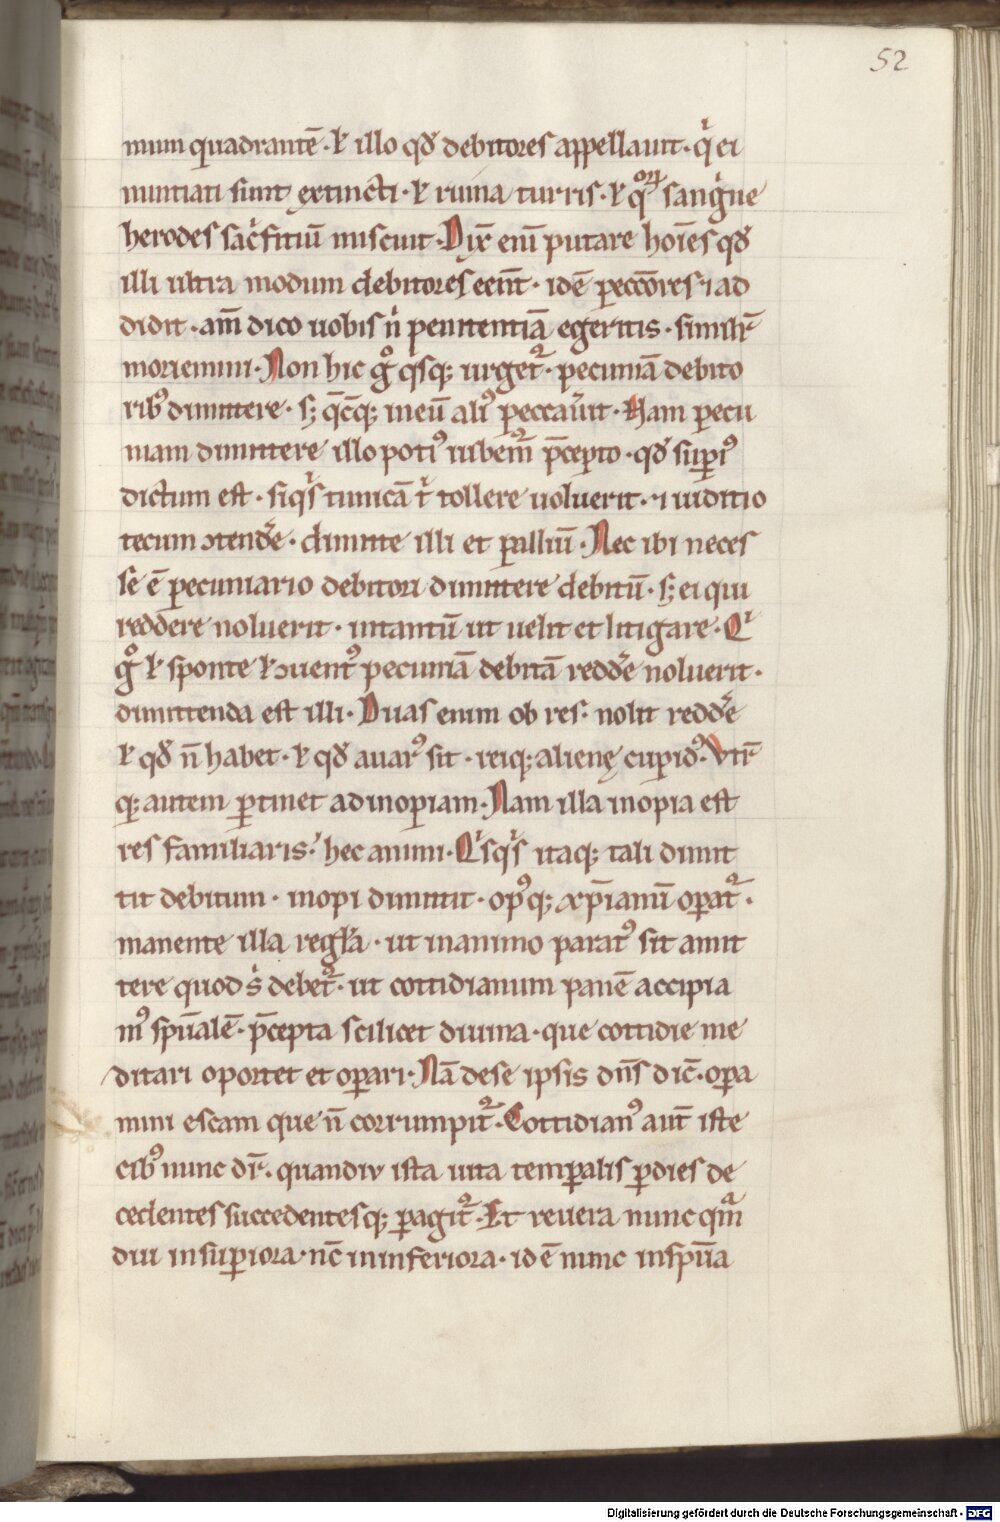 52
mum quadrantē · ł illo qđ debitores appellauit · q̇ ei
nuntiati sunt extincti · ł ruina turris · ł qͦꝝ sangu̇ne
herodes sac̓fitiū miscuit · Dix̄ enī putare hoīes qđ
illi ultra modum debitores eēnt · idē peccōres · ⁊ ad
didit · am̄ dico uobis n̓ penitentiā egeritis · simil̓r
moriemini · Non hic gͦ qsq; urget᷑ · pecuniā debito
rib᷒ dimittere · s; q̄cq; ineū ali᷒ peccau̓it · Nam pecu
niam dimittere illo poti᷒ iubem᷑ p̄cepto · qđ supi᷒
dictum est · siqͥs tunicā t̓ tollere uoluerit · ⁊ iuditio
tecum ↄtendẽ · dimitte illi et palliū · Nec ibi neces
se ē pecuniario debitori dimittere debitū · s; ei qui
reddere noluerit · intantū ut uelit et litigare · Qͥ
gͦ ł sponte ł ↄuent᷒ pecuniā debitā reddẽ noluerit ·
dimittenda est illi · Duas enim ob res · nolit reddẽ
ł qđ n̄ habet · ł qđ auar᷒ sit · reiq; alienę cupid᷒ · Vtr̄
q; autem ꝑtinet ad inopiam · Nam illa inopia est
res familiaris · hec animi · Qͥsqͥs itaq; tali dimit
tit debitum · inopi dimittit · op᷒q; xp̄ianū oꝑat᷑ ·
manente illa reg̓la · ut in animo parat᷒ sit amit
tere quod s̓ debet᷑ · ut cottidianum panē accipia
m᷒ spūalē · p̄cepta scilicet diuina · que cottidie me
ditari oportet et oꝑari · Nā de se ipsis dn̄s dic̄ · opa
mini escam que n̄ corrumpit᷑ · Cottidian᷒ aut̄ iste
cib᷒ nunc dr̄ · quandiu ista uita temꝑalis ꝑ dies de
cedentes succedentesq; ꝑagit᷑ · Et reuera nunc qm̄
diu in suꝑiora · nc̄ in inferiora · id ē nunc in spūa
Digitalisierung gefördert durch die Deutsche Forschungsgemeinschaft - DFG